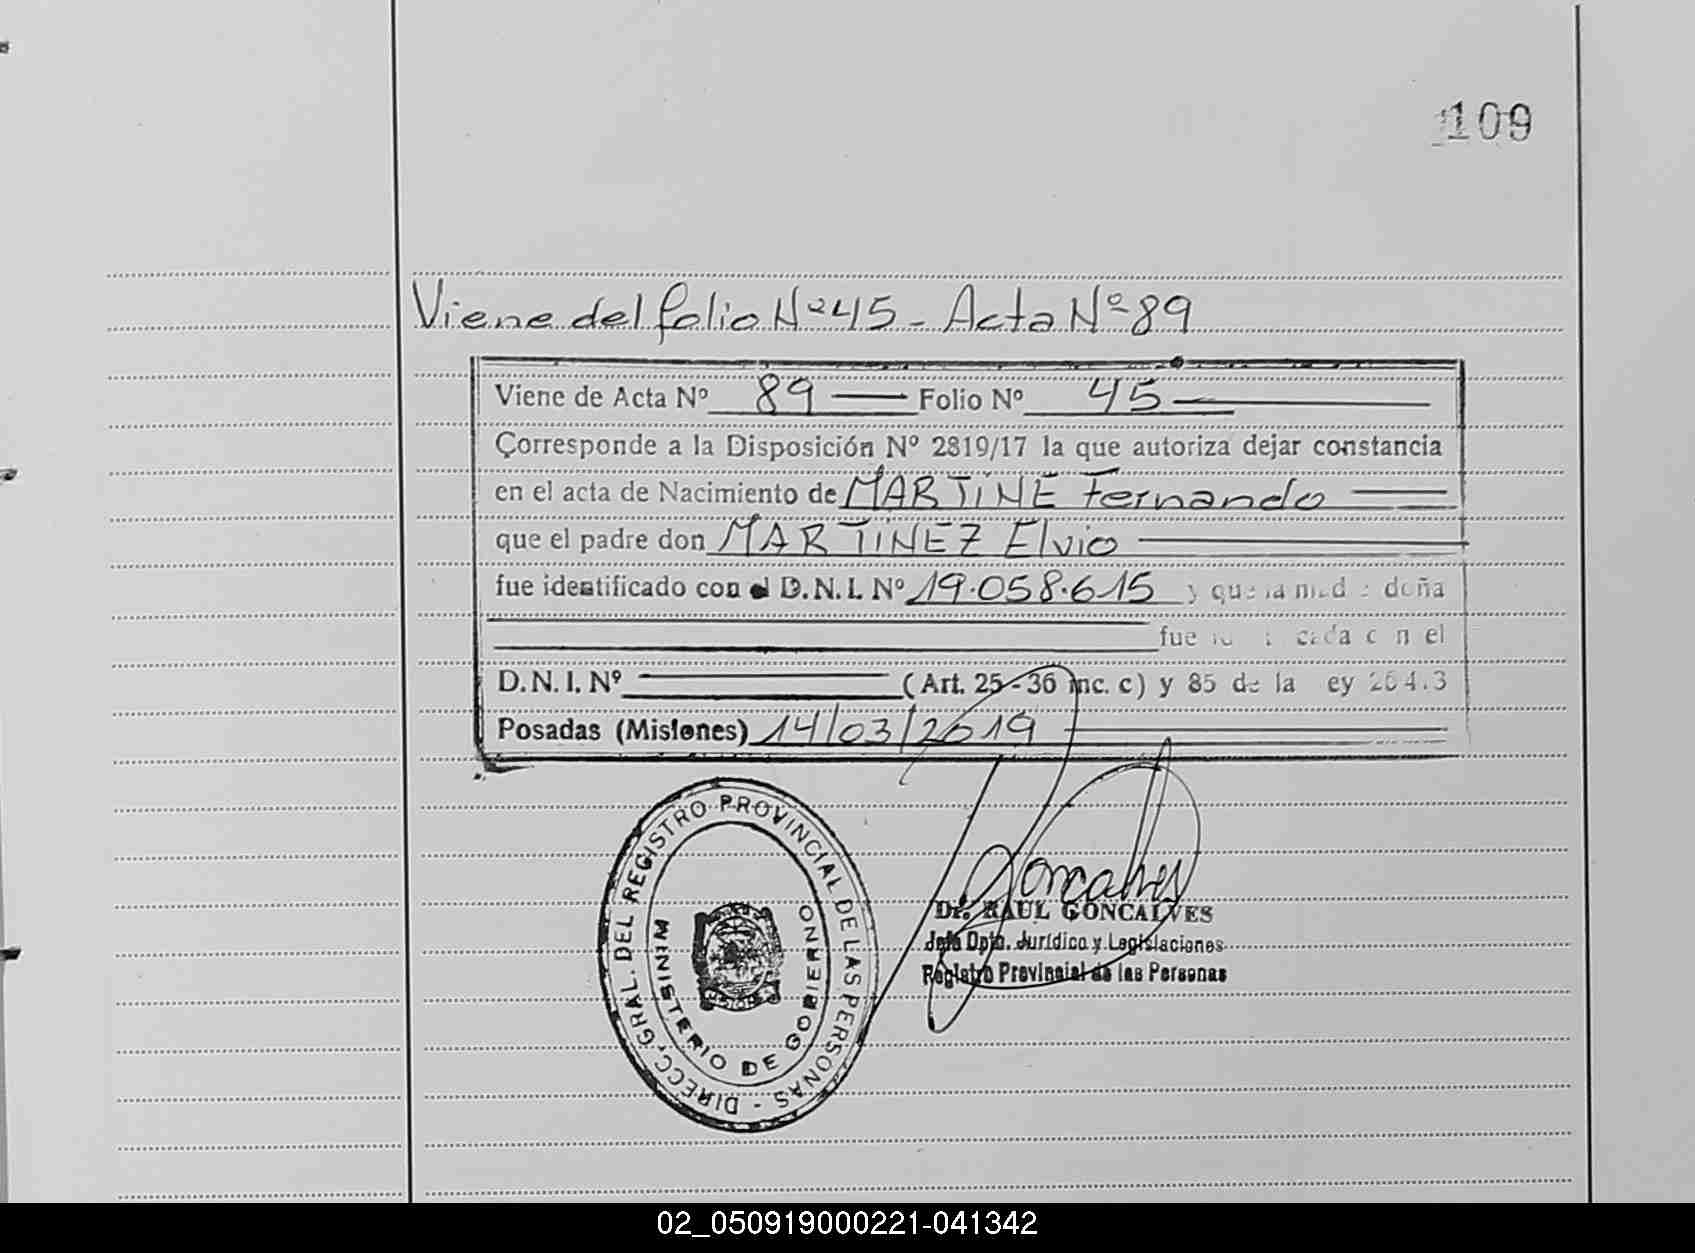 109
Viene del folio Nº 45 - Acta Nº 89
Viene de Acta Nº 89 Folio Nº 45
Corresponde a la Disposición Nº 2819/17 la que autoriza dejar constancia
en el acta de Nacimiento de MARTINE Fernando
que el padre don MARTINEZ Elvio
fue identificado con el D.N.I. Nº 19.058.615 y que la doña
fue el
D.N.I. Nº (Art. 25 - 36 inc. c) y 85 de la
Posadas (Misiones) 14/03/2019
DIRECC. GRAL. DEL REGISTRO PROVINCIAL DE LAS PERSONAS -
MINISTERIO DE GOBIERNO
Goncalves
Dr. RAUL GONCALVES
Jefe Dpto. Jurídico y Legislaciones
Registro Provincial de las Personas
02_050919000221-041342